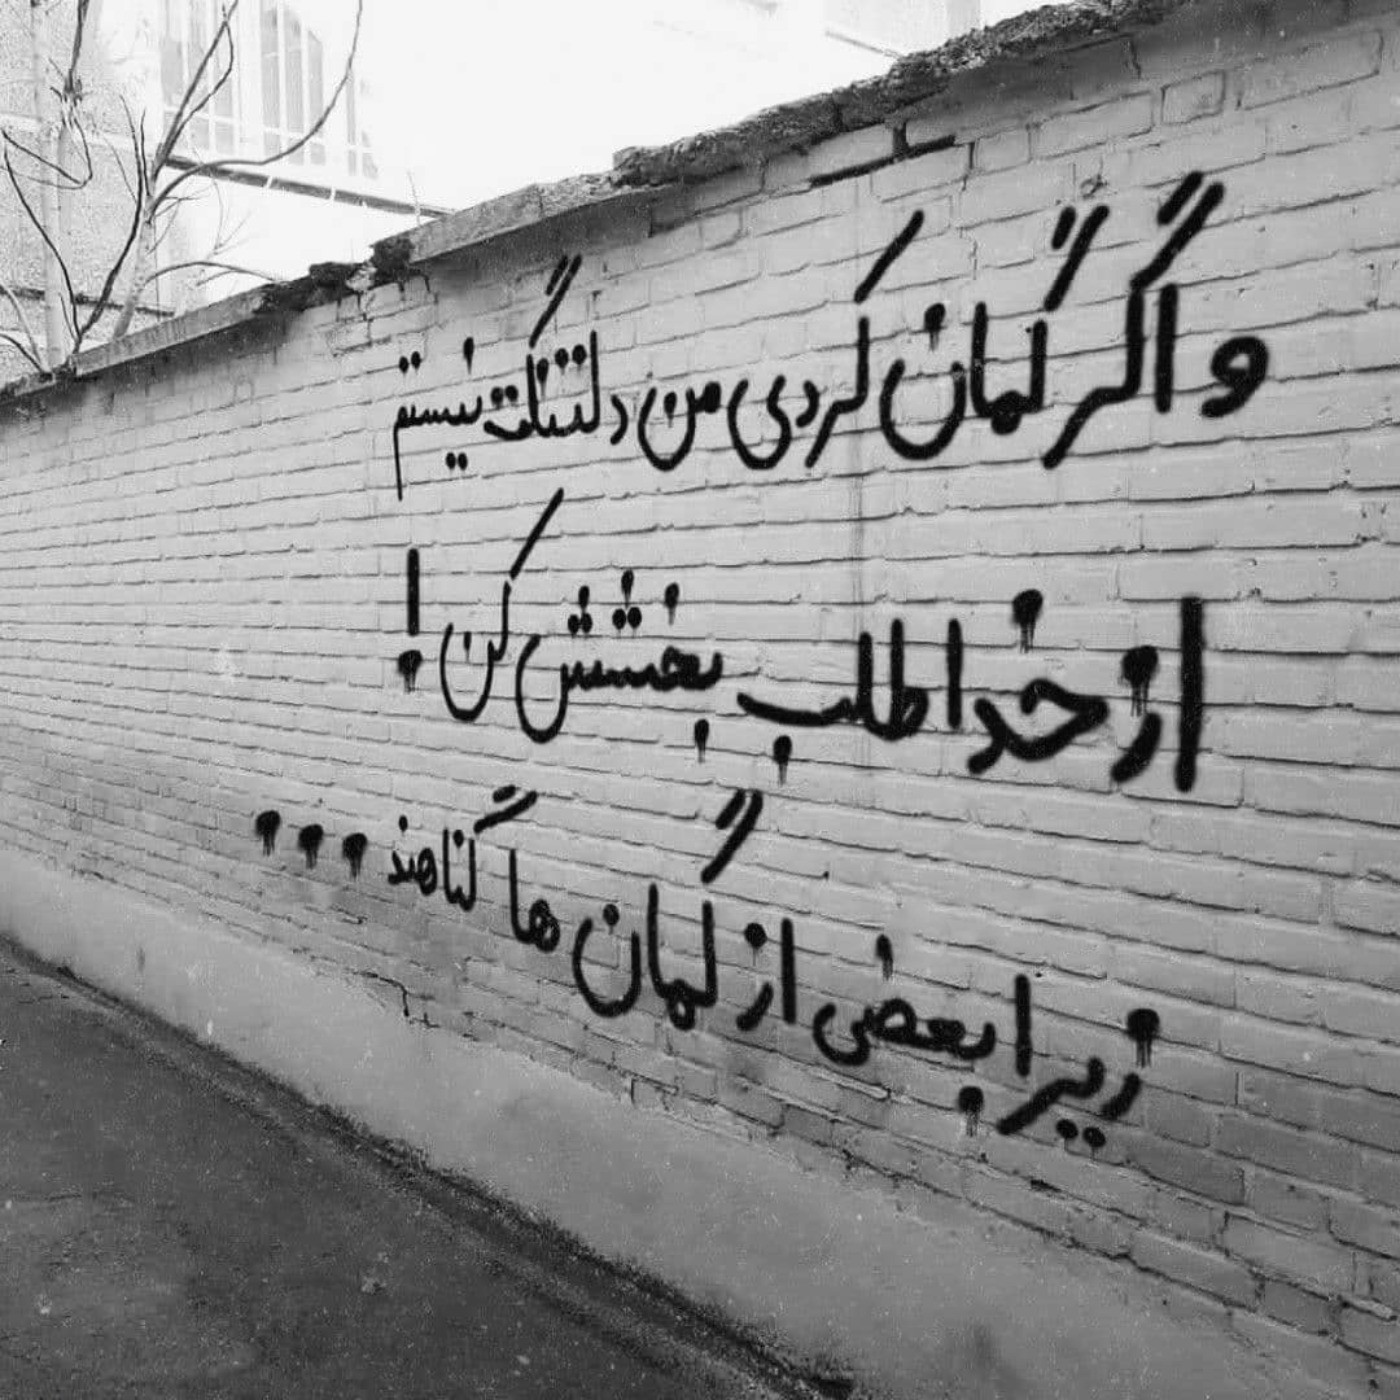 و اگر گمان کردی من دلتنگت نیستم
از خدا طلب بخشش کن!
زیرا بعضی از گمان ها گناهند...